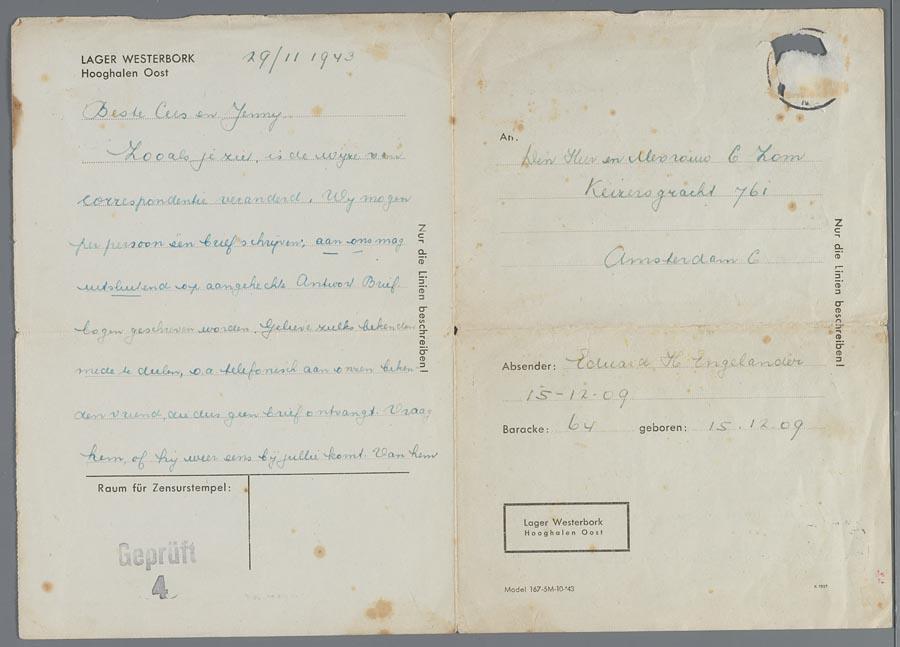 LAGER WESTERBORK
Hooghalen Oost
29/11 1943
Beste Cees en Jenny
Zooals je ziet, is de wijze van
correspondentie veranderd. Wij mogen
per persoon één brief schrijven; aan ons mag
uitsluitend op aangehechte Antwort Brief
bogen geschreven worden. Gelieve zulks bekenden
mede te deelen, o.a. telefonisch aan onzen beken-
den vriend, die dus geen brief ontvangt. Vraag
hem, of hij weer eens bij jullie komt. Van hem
Nur die Linien beschreiben!
Raum für Zensurstempel:
Geprüft
4
An:
Den Heer en Mevrouw C Zom
Keizersgracht 761
Amsterdam C
Nur die Linien beschreiben!
Absender: Eduard H Engelander
15-12-09
Baracke: 64 geboren: 15.12.09
Lager Westerbork
Hooghalen Oost
Model 167-5M-10-'43